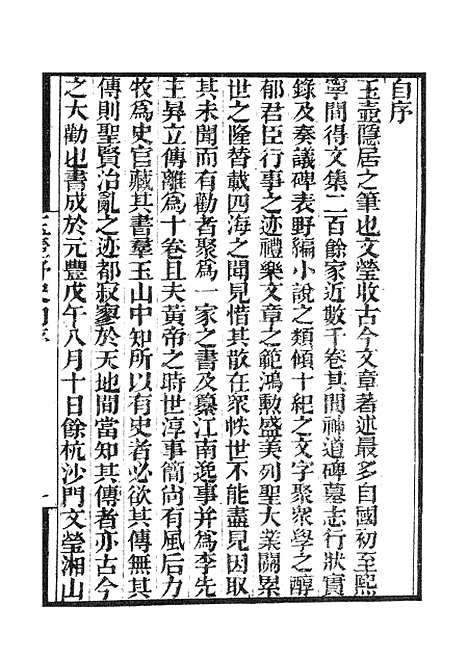 自序
玉壺隱居之筆也文瑩收古今文章著述最多自國初至熙
寧間得文集二百餘家近數千卷其間神道碑墓志行狀實
錄及奏議碑表野編小說之類傾十紀之文字聚眾學之醇
郁君臣行事之迹禮樂文章之範鴻勳盛美列聖大業關累
世之隆替載四海之聞見惜其散在眾帙世不能盡見因取
其未聞而有勸者聚爲一家之書及纂江南逸事并爲李先
主昇立傳離爲十卷且夫黃帝之時世淳事簡尚有風后力
牧爲史官藏其書羣玉山中知所以有史者必欲其傳無其
傳則聖賢治亂之迹都寂寥於天地間當知其傳者亦古今
之大勸也書成於元豐戊午八月十日餘杭沙門文瑩湘山